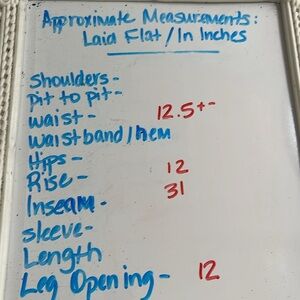 Approximate Measurements:
Laid Flat/In Inches
Shoulders-
pit to pit-
waist- 12.5+-
waistband/hem
Hips-
Rise- 12
Inseam- 31
sleeve-
Length
Leg Opening- 12